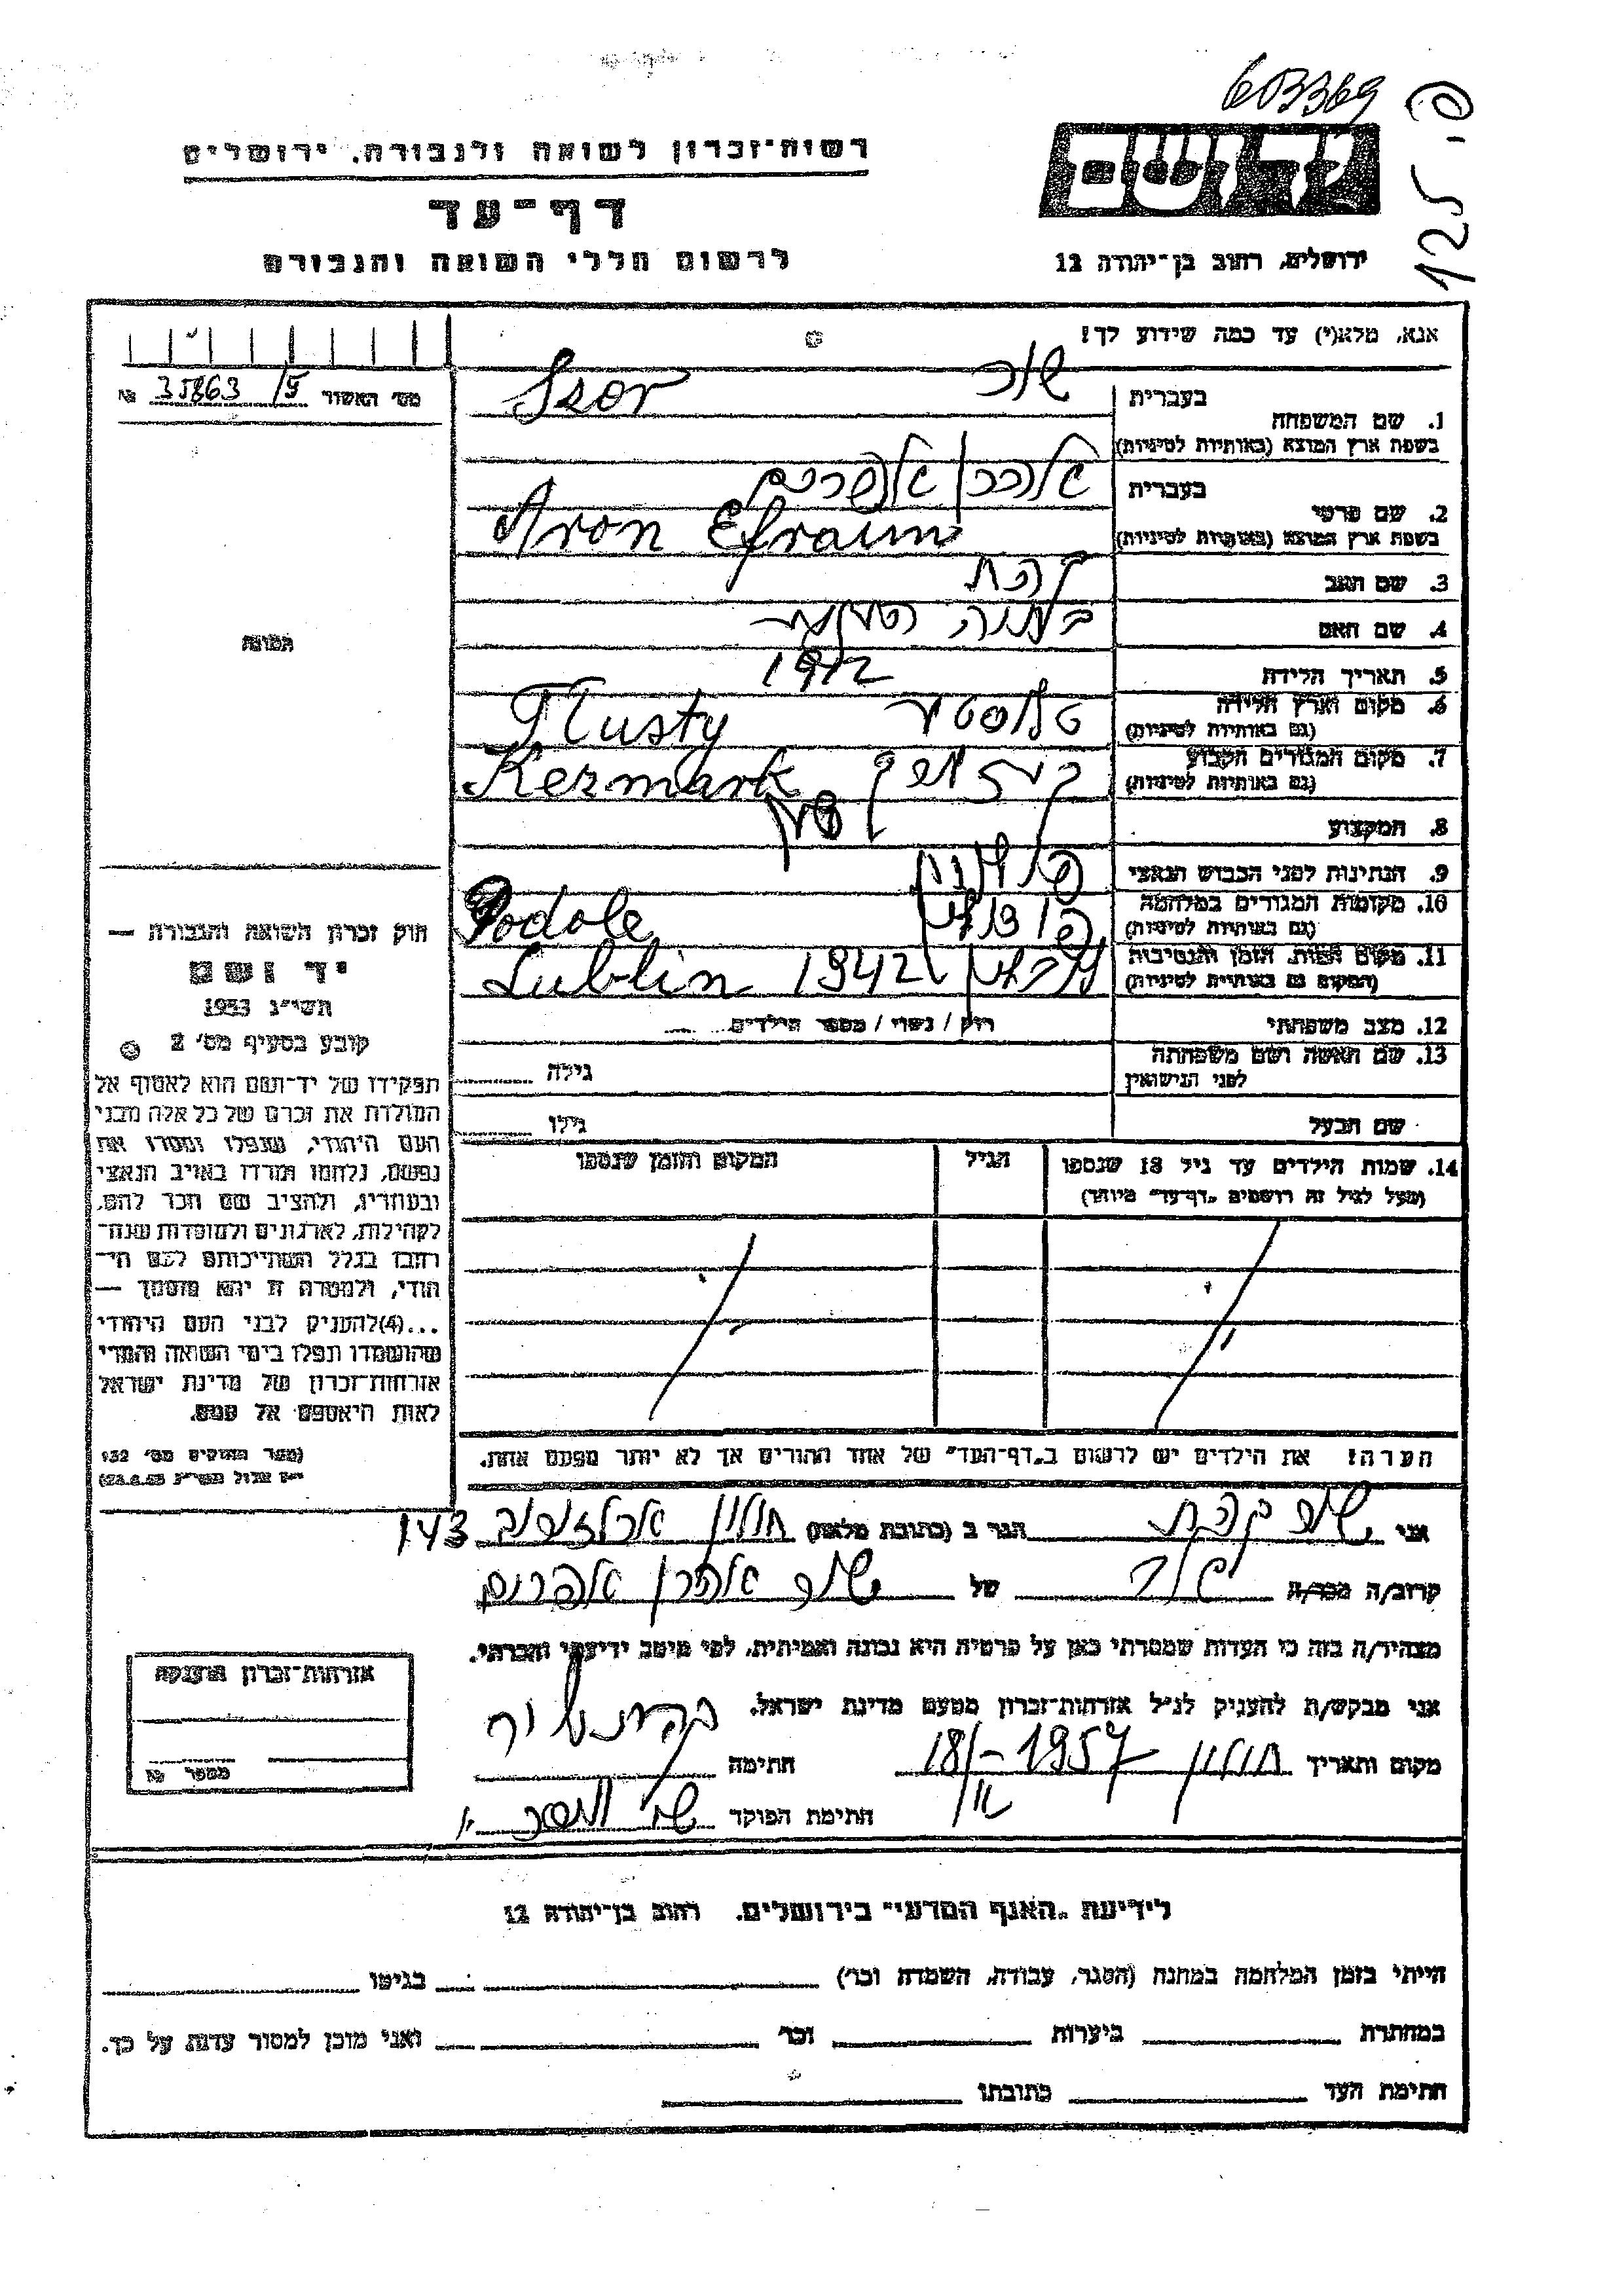 603369
125 .פ
רשות־זכרון לשואה ולגבורה, ירושלים
יד ושם
דף־עד
לרשום חללי השואה והגבורה
ירושלים, רחוב בן־יהודה 12
אנא, מלא(י) עד כמה שידוע לך!
מס' האשור 35863/5 №
1. שם המשפחה
בעברית שור
בשפת ארץ המוצא (באותיות לטיניות) Szor
2. שם פרטי
בעברית אהרן אפרים
בשפת ארץ המוצא (באותיות לטיניות) Aron Efraim
3. שם האב קהת
4. שם האם
5. תאריך הלידה 1912
6. מקום וארץ הלידה
(גם באותיות לטיניות) Tlusty
7. מקום המגורים הקבוע
(גם באותיות לטיניות) Kezmark
8. המקצוע
9. הנתינות לפני הכבוש הנאצי
10. מקומות המגורים במלחמה
(גם באותיות לטיניות) Podole
11. מקום המות, הזמן והנסיבות
(המקום גם באותיות לטיניות) Lublin 1942
12. מצב משפחתי רווק / נשוי / מספר הילדים
13. שם האשה ושם משפחתה
לפני הנישואין גילה
שם הבעל גילו
14. שמות הילדים עד גיל 18 שנספו
(מעל לגיל זה רושמים "דף־עד" מיוחד)
הגיל
המקום והזמן שנספו
הערה! את הילדים יש לרשום ב"דף־העד" של אחד ההורים אך לא יותר מפעם אחת.
תמונה
חוק זכרון השואה והגבורה —
יד ושם
תשי"ג 1953
קובע בסעיף מס' 2
תפקידו של יד־ושם הוא לאסוף אל
המולדת את זכרם של כל אלה מבני
העם היהודי, שנפלו ומסרו את
נפשם, נלחמו ומרדו באויב הנאצי
ובעוזריו, ולהציב שם וזכר להם,
לקהילות, לארגונים ולמוסדות שנח־
רבו בגלל השתייכותם לעם הי־
הודי, ולמטרה זו יהא מוסמך —
...(4) להעניק לבני העם היהודי
שהושמדו ונפלו בימי השואה והמרי
אזרחות־זכרון של מדינת ישראל
לאות היאספם אל עמם.
(ספר החוקים מס' 132
י"ז אלול תשי"ג 28.8.53)
אני שור קהת הגר ב (כתובת מלאה) חולון ארלוזורוב 143
קרוב/ה מכר/ה של שור אהרן אפרים
מצהיר/ה בזה כי העדות שמסרתי כאן על פרטיה היא נכונה ואמיתית, לפי מיטב ידיעתי והכרתי.
אני מבקש/ת להעניק לנ"ל אזרחות־זכרון מטעם מדינת ישראל.
מקום ותאריך חולון 18/- 1957 חתימה קהת שור
חתימת הפוקד
אזרחות־זכרון הוענקה
מספר №
לידיעת "האגף המדעי" בירושלים. רחוב בן־יהודה 12
הייתי בזמן המלחמה במחנה (הסגר, עבודה, השמדה וכו') בגיטו
במחתרת ביערות וכו' ואני מוכן למסור עדות על כך.
חתימת העד כתובתו